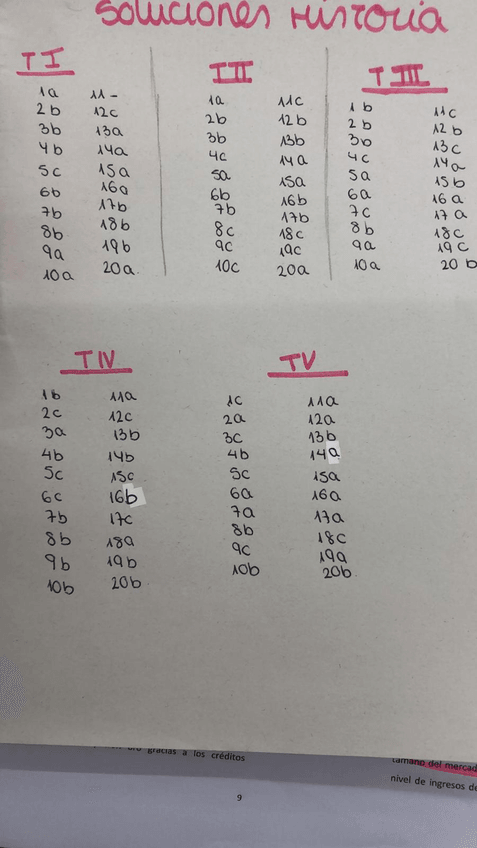 Soluciones Historia
T I
1a 11-
2b 12c
3b 13a
4b 14a
5c 15a
6b 16a
7b 17b
8b 18b
9a 19b
10a 20a.
T II
1a 11c
2b 12b
3b 13b
4c 14a
5a 15a
6b 16b
7b 17b
8c 18c
9c 19c
10c 20a
T III
1b 11c
2b 12b
3b 13c
4c 14a
5a 15b
6a 16a
7c 17a
8b 18c
9a 19c
10a 20b
T IV
1b 11a
2c 12c
3a 13b
4b 14b
5c 15c
6c 16b
7b 17c
8b 18a
9b 19b
10b 20b
T V
1c 11a
2a 12a
3c 13b
4b 14a
5c 15a
6a 16a
7a 17a
8b 18c
9c 19a
10b 20b
gracias a los créditos
tamaño del mercad
nivel de ingresos de
9